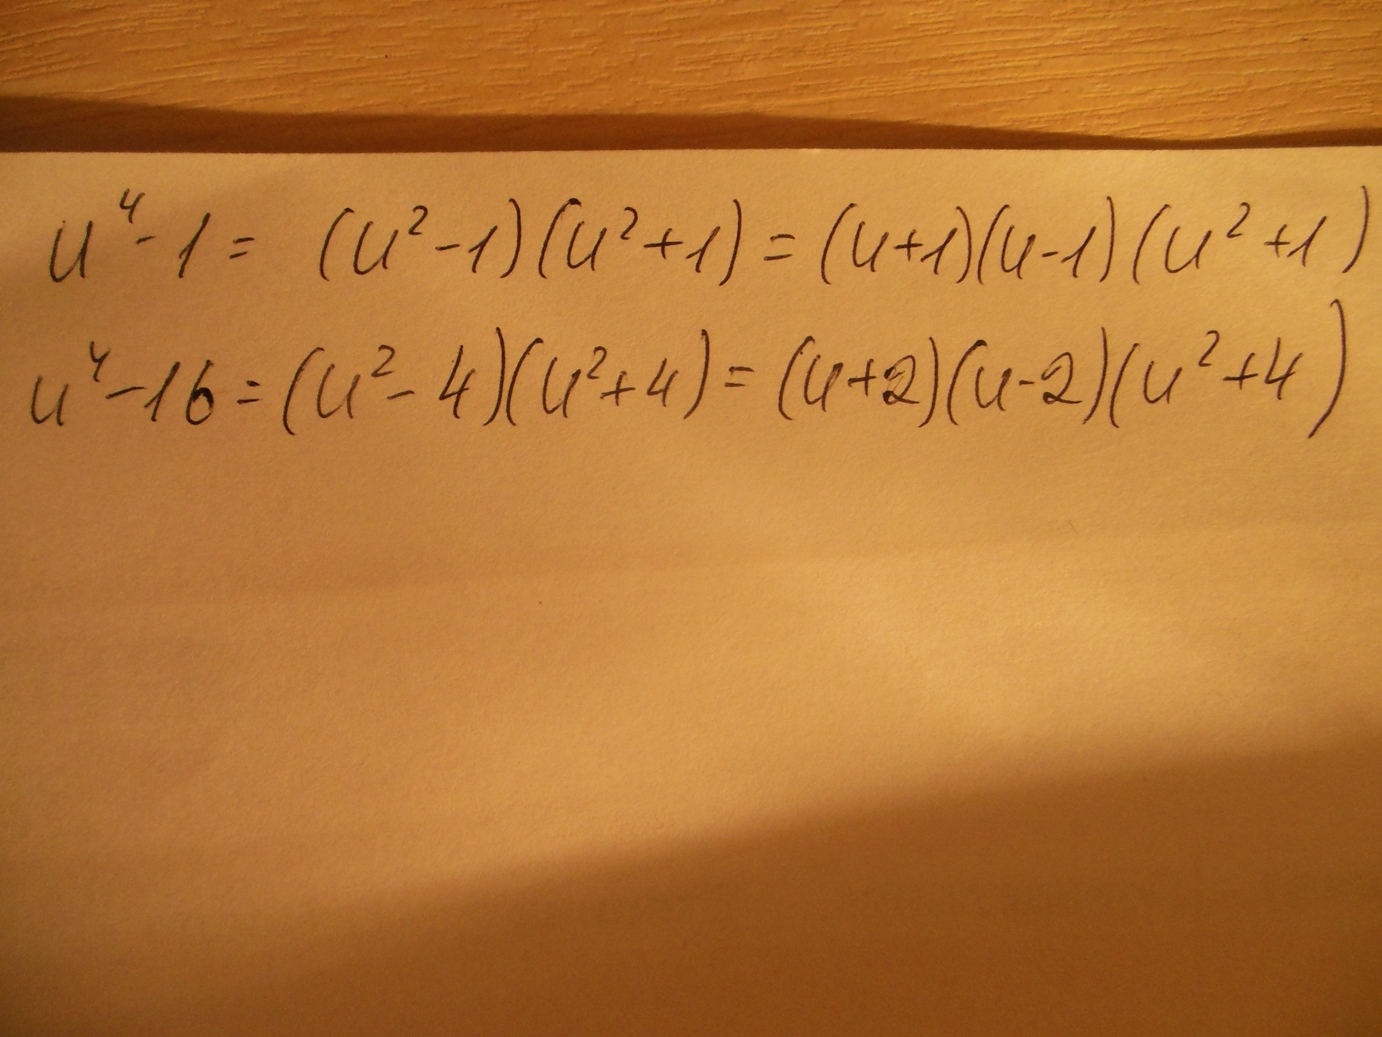 u⁴-1= (u²-1)(u²+1)=(u+1)(u-1)(u²+1)
u⁴-16=(u²-4)(u²+4)=(u+2)(u-2)(u²+4)